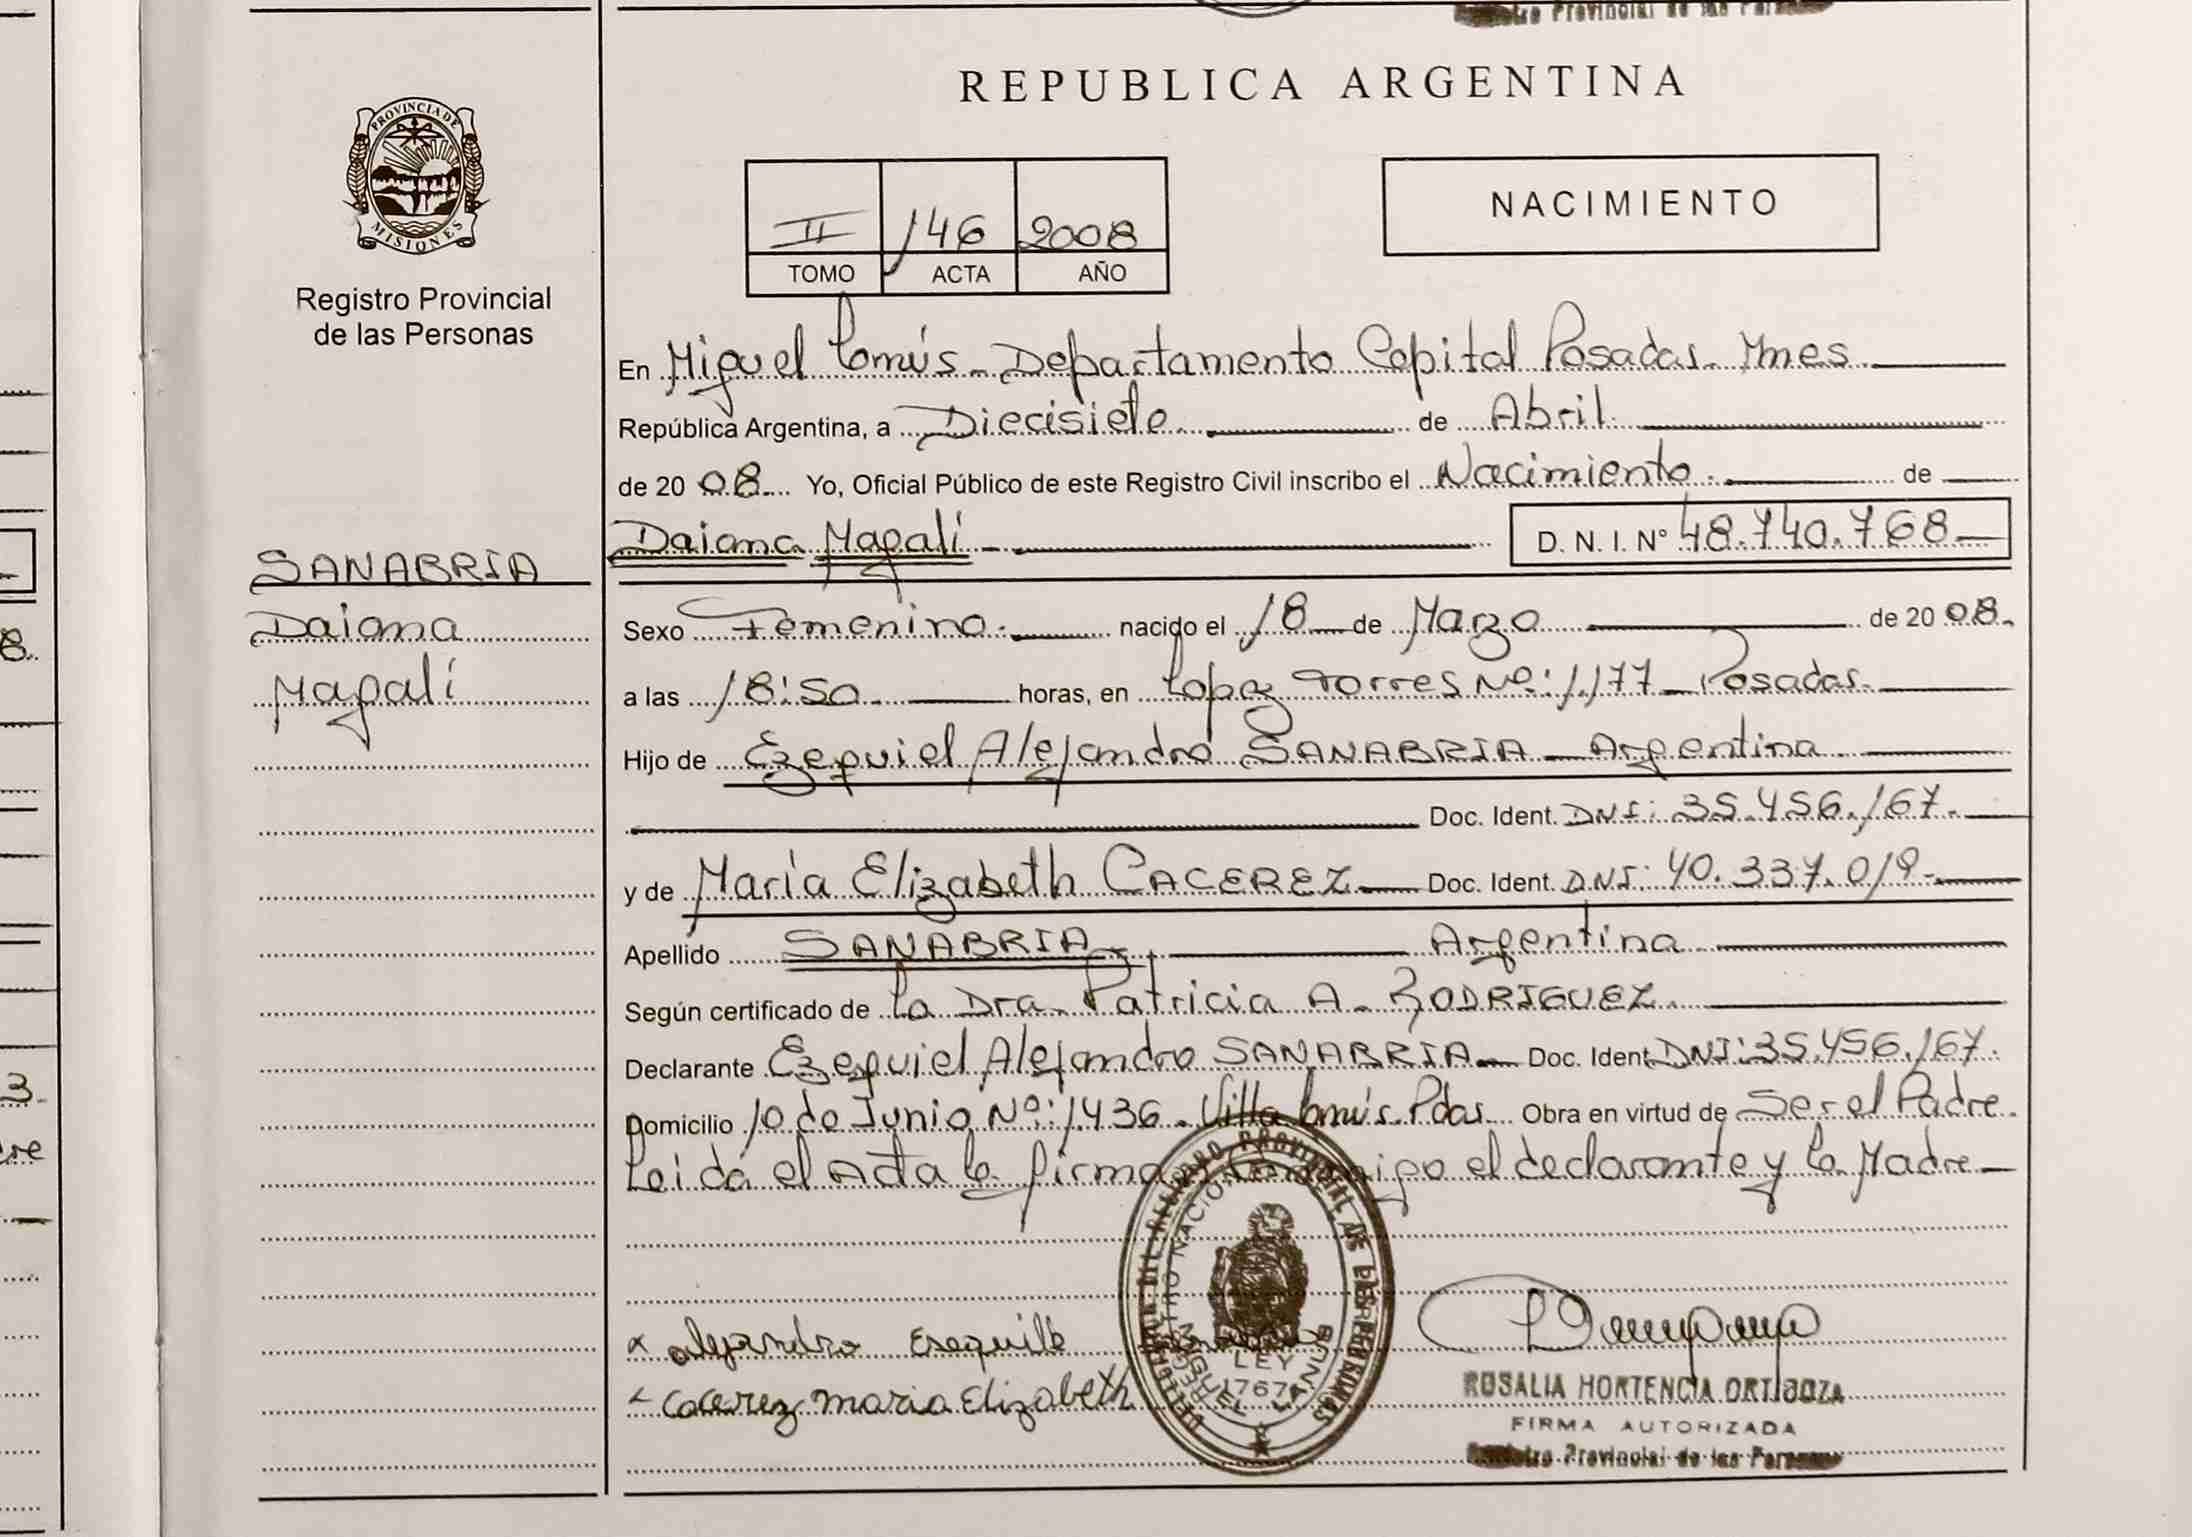 REPUBLICA ARGENTINA
PROVINCIA DE
MISIONES
Registro Provincial
de las Personas
II 146 2008
TOMO ACTA AÑO
NACIMIENTO
En Miguel Lanús - Departamento Capital Posadas - Mnes
República Argentina, a Diecisiete de Abril
de 2008 Yo, Oficial Público de este Registro Civil inscribo el Nacimiento de
Daiana Magalí D. N. I. Nº 48.740.768
SANABRIA
Daiana
Magalí
Sexo Femenino nacido el 18 de Marzo de 2008.
a las 18:50 horas, en Lopez Torres Nº: 1.177 Posadas
Hijo de Ezequiel Alejandro SANABRIA - Argentina
Doc. Ident. DNI: 35.456.167.
y de María Elizabeth CACEREZ Doc. Ident. DNI: 40.337.019
Apellido SANABRIA Argentina
Según certificado de la Dra. Patricia A. RODRIGUEZ
Declarante Ezequiel Alejandro SANABRIA Doc. Ident DNI: 35.456.167.
Domicilio 10 de Junio Nº: 1.436 - Villa Lanús. Pdas. Obra en virtud de Ser el Padre.
Leida el Acta la firma el declarante y la Madre
x Alejandro Esequile
x Cacerez maria Elizabeth
LEY
ROSALIA HORTENCIA ORTIGOZA
FIRMA AUTORIZADA
Provincial de las Personas